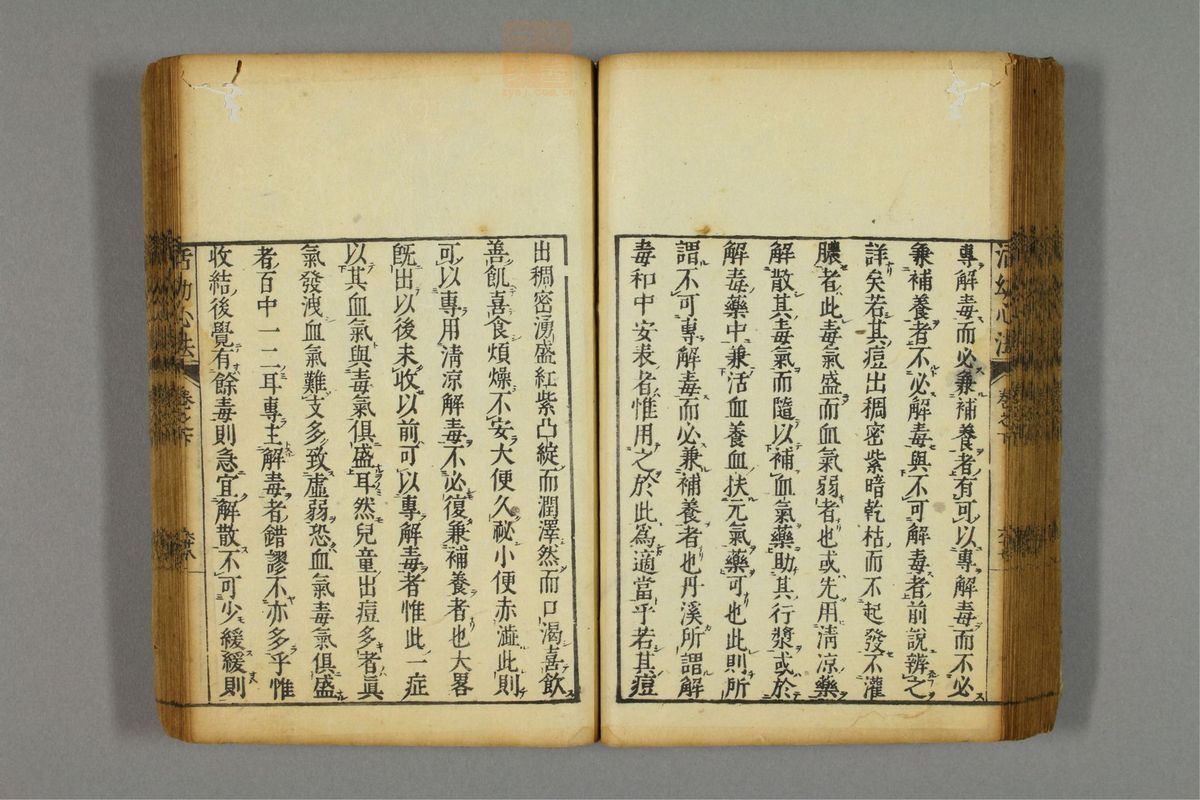 活幼心法
卷之下
專解毒而必兼補養者有可以專解毒而不必
兼補養者不必解毒與不可解毒者前說辨之
詳矣若其痘出稠密紫暗乾枯而不起發不灌
膿者此毒氣盛而血氣弱者也或先用清凉藥
解散其毒氣而隨以補血氣藥助其行漿或於
解毒藥中兼活血養血扶元氣藥可也此則所
謂不可專解毒而必兼補養者也丹溪所謂解
毒和中安表者惟用之於此爲適當乎若其痘
出稠密湧盛紅紫凸綻而潤澤然而口渴喜飲
善飢喜食煩燥不安大便久祕小便赤澁此則
可以專用清凉解毒不必復兼補養者也大畧
既出以後未收以前可以專解毒者惟此一症
以其血氣與毒氣俱盛耳然兒童出痘多者眞
氣發洩血氣難支多致虛弱恐血氣毒氣俱盛
者百中一二耳專主解毒者錯謬不亦多乎惟
收結後覺有餘毒則急宜解散不可少緩緩則
活幼心法
卷之下